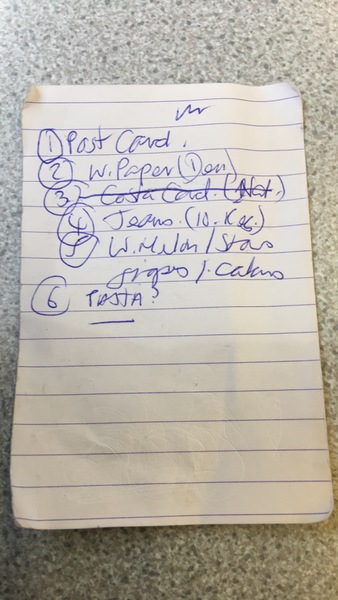 ① Post Card.
② W. Paper (Den)
③ Costa Card. (Nat.)
④ Jeans. (10. Kec.)
⑤ W. Melon / Star
/ . Cakes
⑥ PASTA?